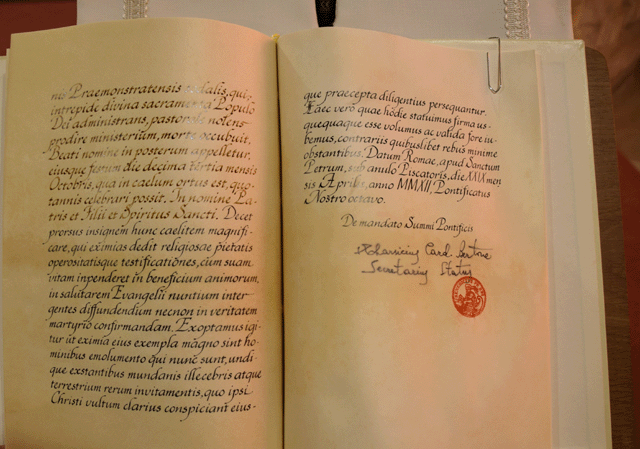 nis Praemonstratensis sodalis, qui,
intrepide divina sacramenta Populo
Dei administrans, pastorale nolens
prodire ministerium, morte occubuit,
Beati nomine in posterum appelletur,
eiusque festum die decima tertia mensis
Octobris, qua in caelum ortus est, quo-
tannis celebrari possit. In nomine Pa-
tris et Filii et Spiritus Sancti. Decet
prorsus insignem hunc caelitem magnifi-
care, qui eximias dedit religiosae pietatis
operositatisque testificationes, cum suam
vitam inpenderet in beneficium animorum,
in salutarem Evangelii nuntium inter
gentes diffundendum necnon in veritatem
martyrio confirmandam. Exoptamus igi
tur ut eximia eius exempla magno sint ho
minibus emolumento qui nunc sunt, undi
que exstantibus mundanis illecebris atque
terrestrium rerum invitamentis, quo ipsi
Christi vultum clarius conspiciant eius-
que praecepta diligentius persequantur.
Haec vero quae hodie statuimus firma us-
quequaque esse volumus ac valida fore iu-
bemus, contrariis quibuslibet rebus minime
obstantibus. Datum Romae, apud Sanctum
Petrum, sub anulo Piscatoris, die XXIX men
sis Aprilis, anno MMXII, Pontificatus
Nostro octavo.
De mandato Summi Pontificis
Tharsicius Card. Bertone
Secretarius Status